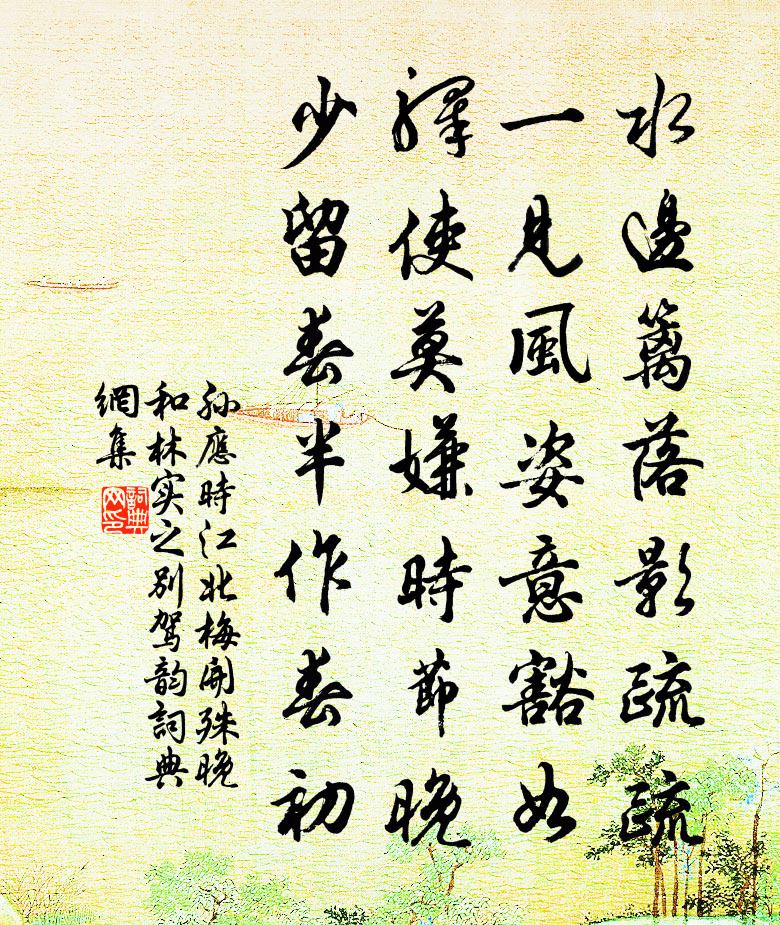 水邊籬落影疏疏
一見風姿意豁如
驛使莫嫌時節晚
少留春半作春初
孫應時江北梅開殊晚
和林实之別駕韵詞典
網集
詞典网印